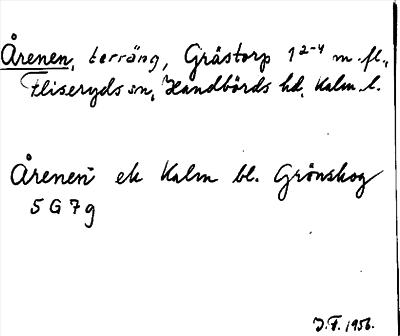 Årenen, terräng, Gråstorp 1²⁻⁴ m.fl.,
Fliseryds sn, Handbörds hd, Kalm. l.
Årenen ek Kalm bl. Grönskog
5 G 7 g
J.F. 1956.